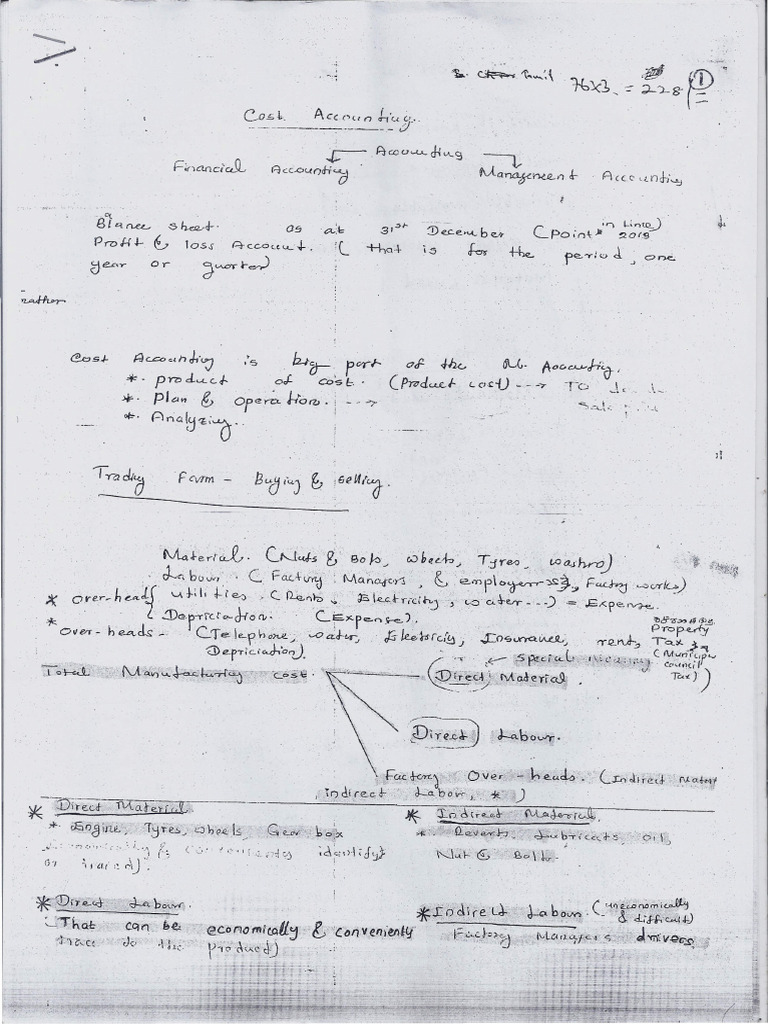 Tamil 76x3 = 228 1
Cost Accounting.
Accounting
Financial Accounting Management Accounting
Blance sheet. as at 31st December (Point in time) 2018
Profit & loss Account. ( that is for the period, one
year or quarter)
rather
Cost Accounting is big part of the M. Accounting.
* product of cost. (Product cost) ---> TO
* Plan & operation. --->
Sale
* Analyzing.
Trading Farm - Buying & selling.
Material. (Nuts & Bots, wheels, Tyres, washro)
Labour. ( Factory Managers, & Factory works)
* over-head { utilities. (Rents, Electricity, water...) = Expense.
{ Depriciation. (Expense).
* over-heads - (Telephone, water, Electricity, Insurance, rent, Property Tax
Depriciation). (Municipal council Tax)
special meaning
Total Manufacturing cost. (Direct) Material.
(Direct) Labour.
Factory Over-heads. (Indirect Mater
indirect Labour, * )
* Direct Material * Indirect Material.
* Engine, Tyres, wheels, Gear box * Lubricats, oil,
Economically & conveniently identify
or traced). Nut & Bolt.
* Direct Labour. * Indirect Labour. (uneconomically & difficult)
That can be economically & convenienty Factory Managers drivers
trace to the product)